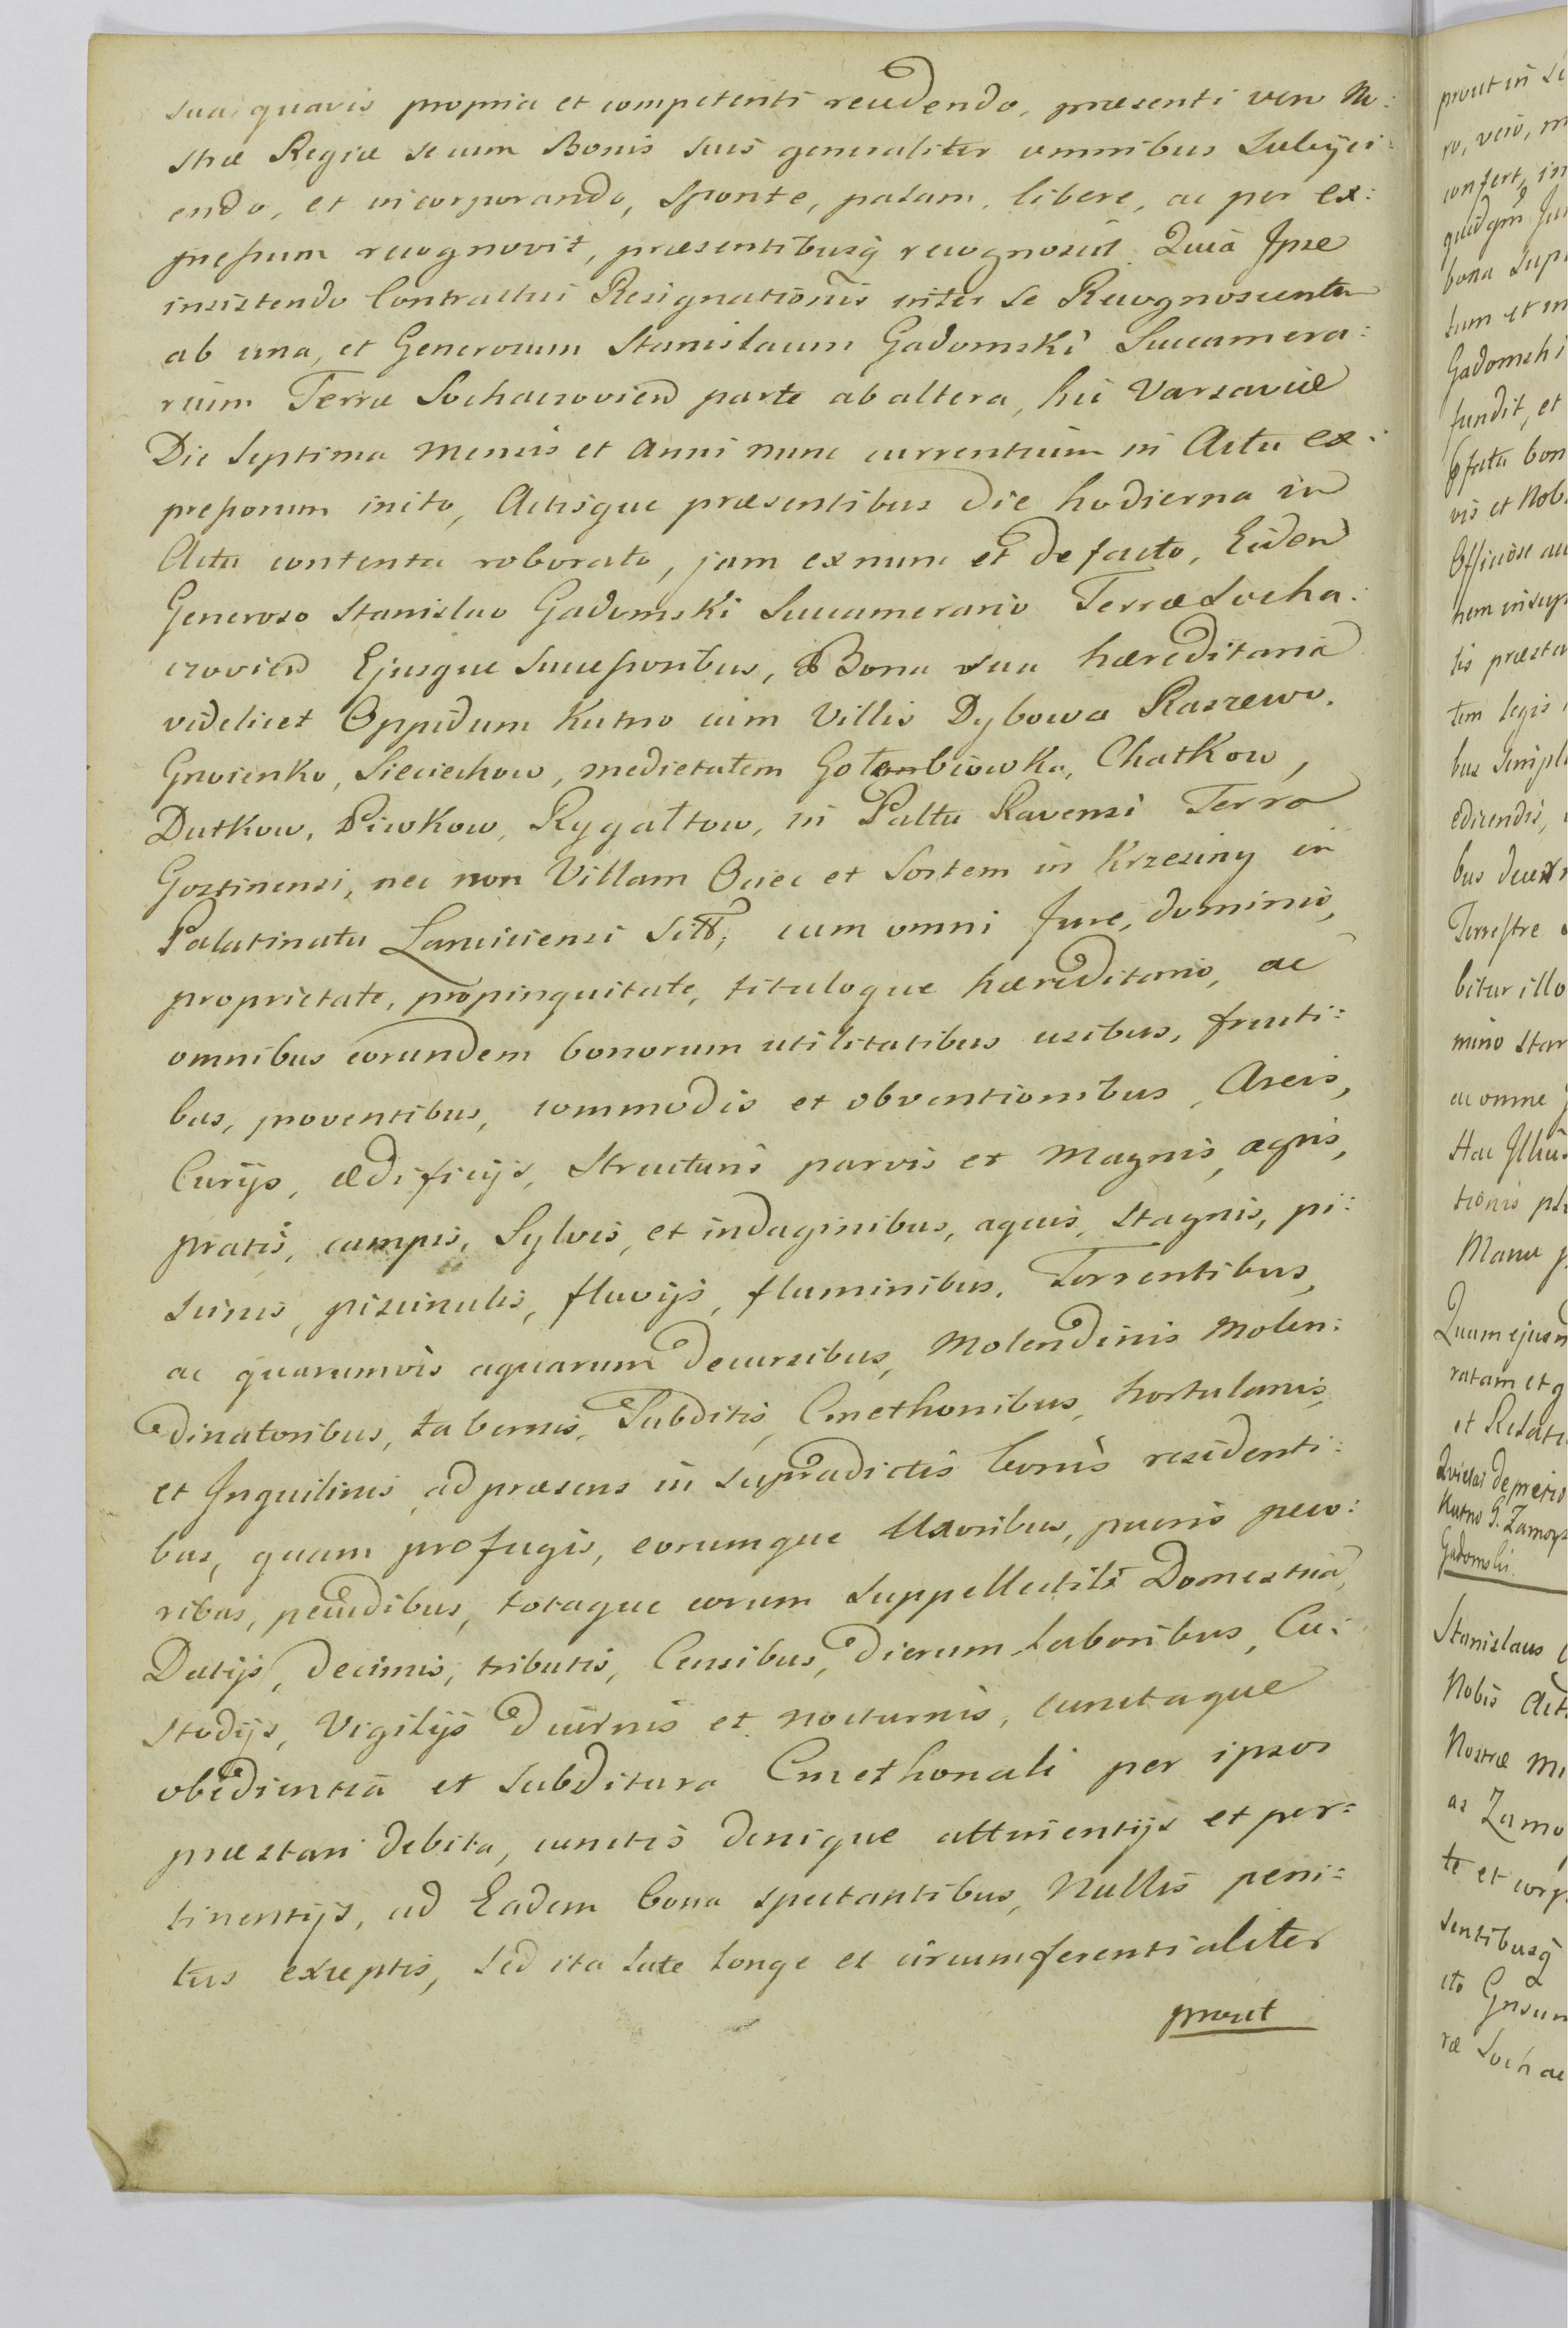 sua quavis propria et competenti recedendo, præsenti vero No:
stræ Regiæ se cum Bonis suis generaliter omnibus Subijci:
endo, et incorporando, Sponte, palam, libere, ac per ex:
preſsum recognovit, præsentibusq̃ recognoscit. Quia Ipse
insistendo Contractui Resignationis inter se Recognoscentem
ab una, et Generosum Stanislaum Gadomski Succamera:
rium Terræ Sochaczovien parte ab altera, hic Varsaviæ
Die Septima Mensis et Anni nunc currentium in Actu ex:
preſsorum inito, Actisque præsentibus die hodierna in
Actu contenta roborato, jam ex nunc et de facto, Eidem
Generoso Stanislao Gadomski Succamerario Terræ Socha:
czovien Ejusque Succeſsoribus, Bona sua hæreditaria
videlicet Oppidum Kutno cum Villis Dybowa Raszewo.
Gnoienko, Sieciechow, medietatem Gołombiowka, Chatkow,
Dutkow, Piwkow, Rygałtow, in Paltu Ravensi Terra
Gostinensi, nec non Villam Osiec et Sortem in Krzesiny in
Palatinatu Lanciciensi sitt; cum omni Jure, dominio,
proprietate, propinquitate, tituloque hæreditario, ac
omnibus eorundem bonorum utilitatibus usibus, fructi:
bus, proventibus, commodis et obventionibus, Areis,
Curijs, ædificijs, Structuris parvis et Magnis, agris,
pratis, campis, Sylvis, et indaginibus, aquis, stagnis, pi:
scinis, piscinulis, fluvijs, fluminibus, Torrentibus,
ac quarumvis aquarum decursibus, Molendinis Molen:
dinatoribus, tabernis, Subditis, Cmethonibus, hortulanis,
et Inquilinis ad præsens in supradictis bonis residenti:
bus, quam profugis, eorumque Uxoribus, pueris peco:
ribus, pecudibus, totaque eorum Suppellectili Domestica,
Datijs, decimis, tributis, Censibus, dierum laboribus, Cu:
stodijs, Vigilijs diurnis et nocturnis, cunctaque
obedientia et subditura Cmethonali per ipsos
præstari debita, cunctis denique attinentijs et per:
tinentijs, ad Eadem bona spectantibus, Nullis peni:
tus exceptis, sed ita late longe et circumferentialiter
prout
prout in
ro, vero,
confert, in
bona sup
tum et in
Gadomski
fundit, et
vis et Nob
Officiose
nem insup
tis præsta
tem legis
bus simpl
edicendis,
Terreſtre
bitur illo
mino Stan
ac omne
Hac Illius
tionis
Manu
Quam ejusm
ratam et
et Relati
Quietat de pretio
Kutno G. Zamoys
Gadomski.
Stanislaus
Nobis Act
Nostræ
as Zamo
te et corp
sentibusq̃
ræ Sochac